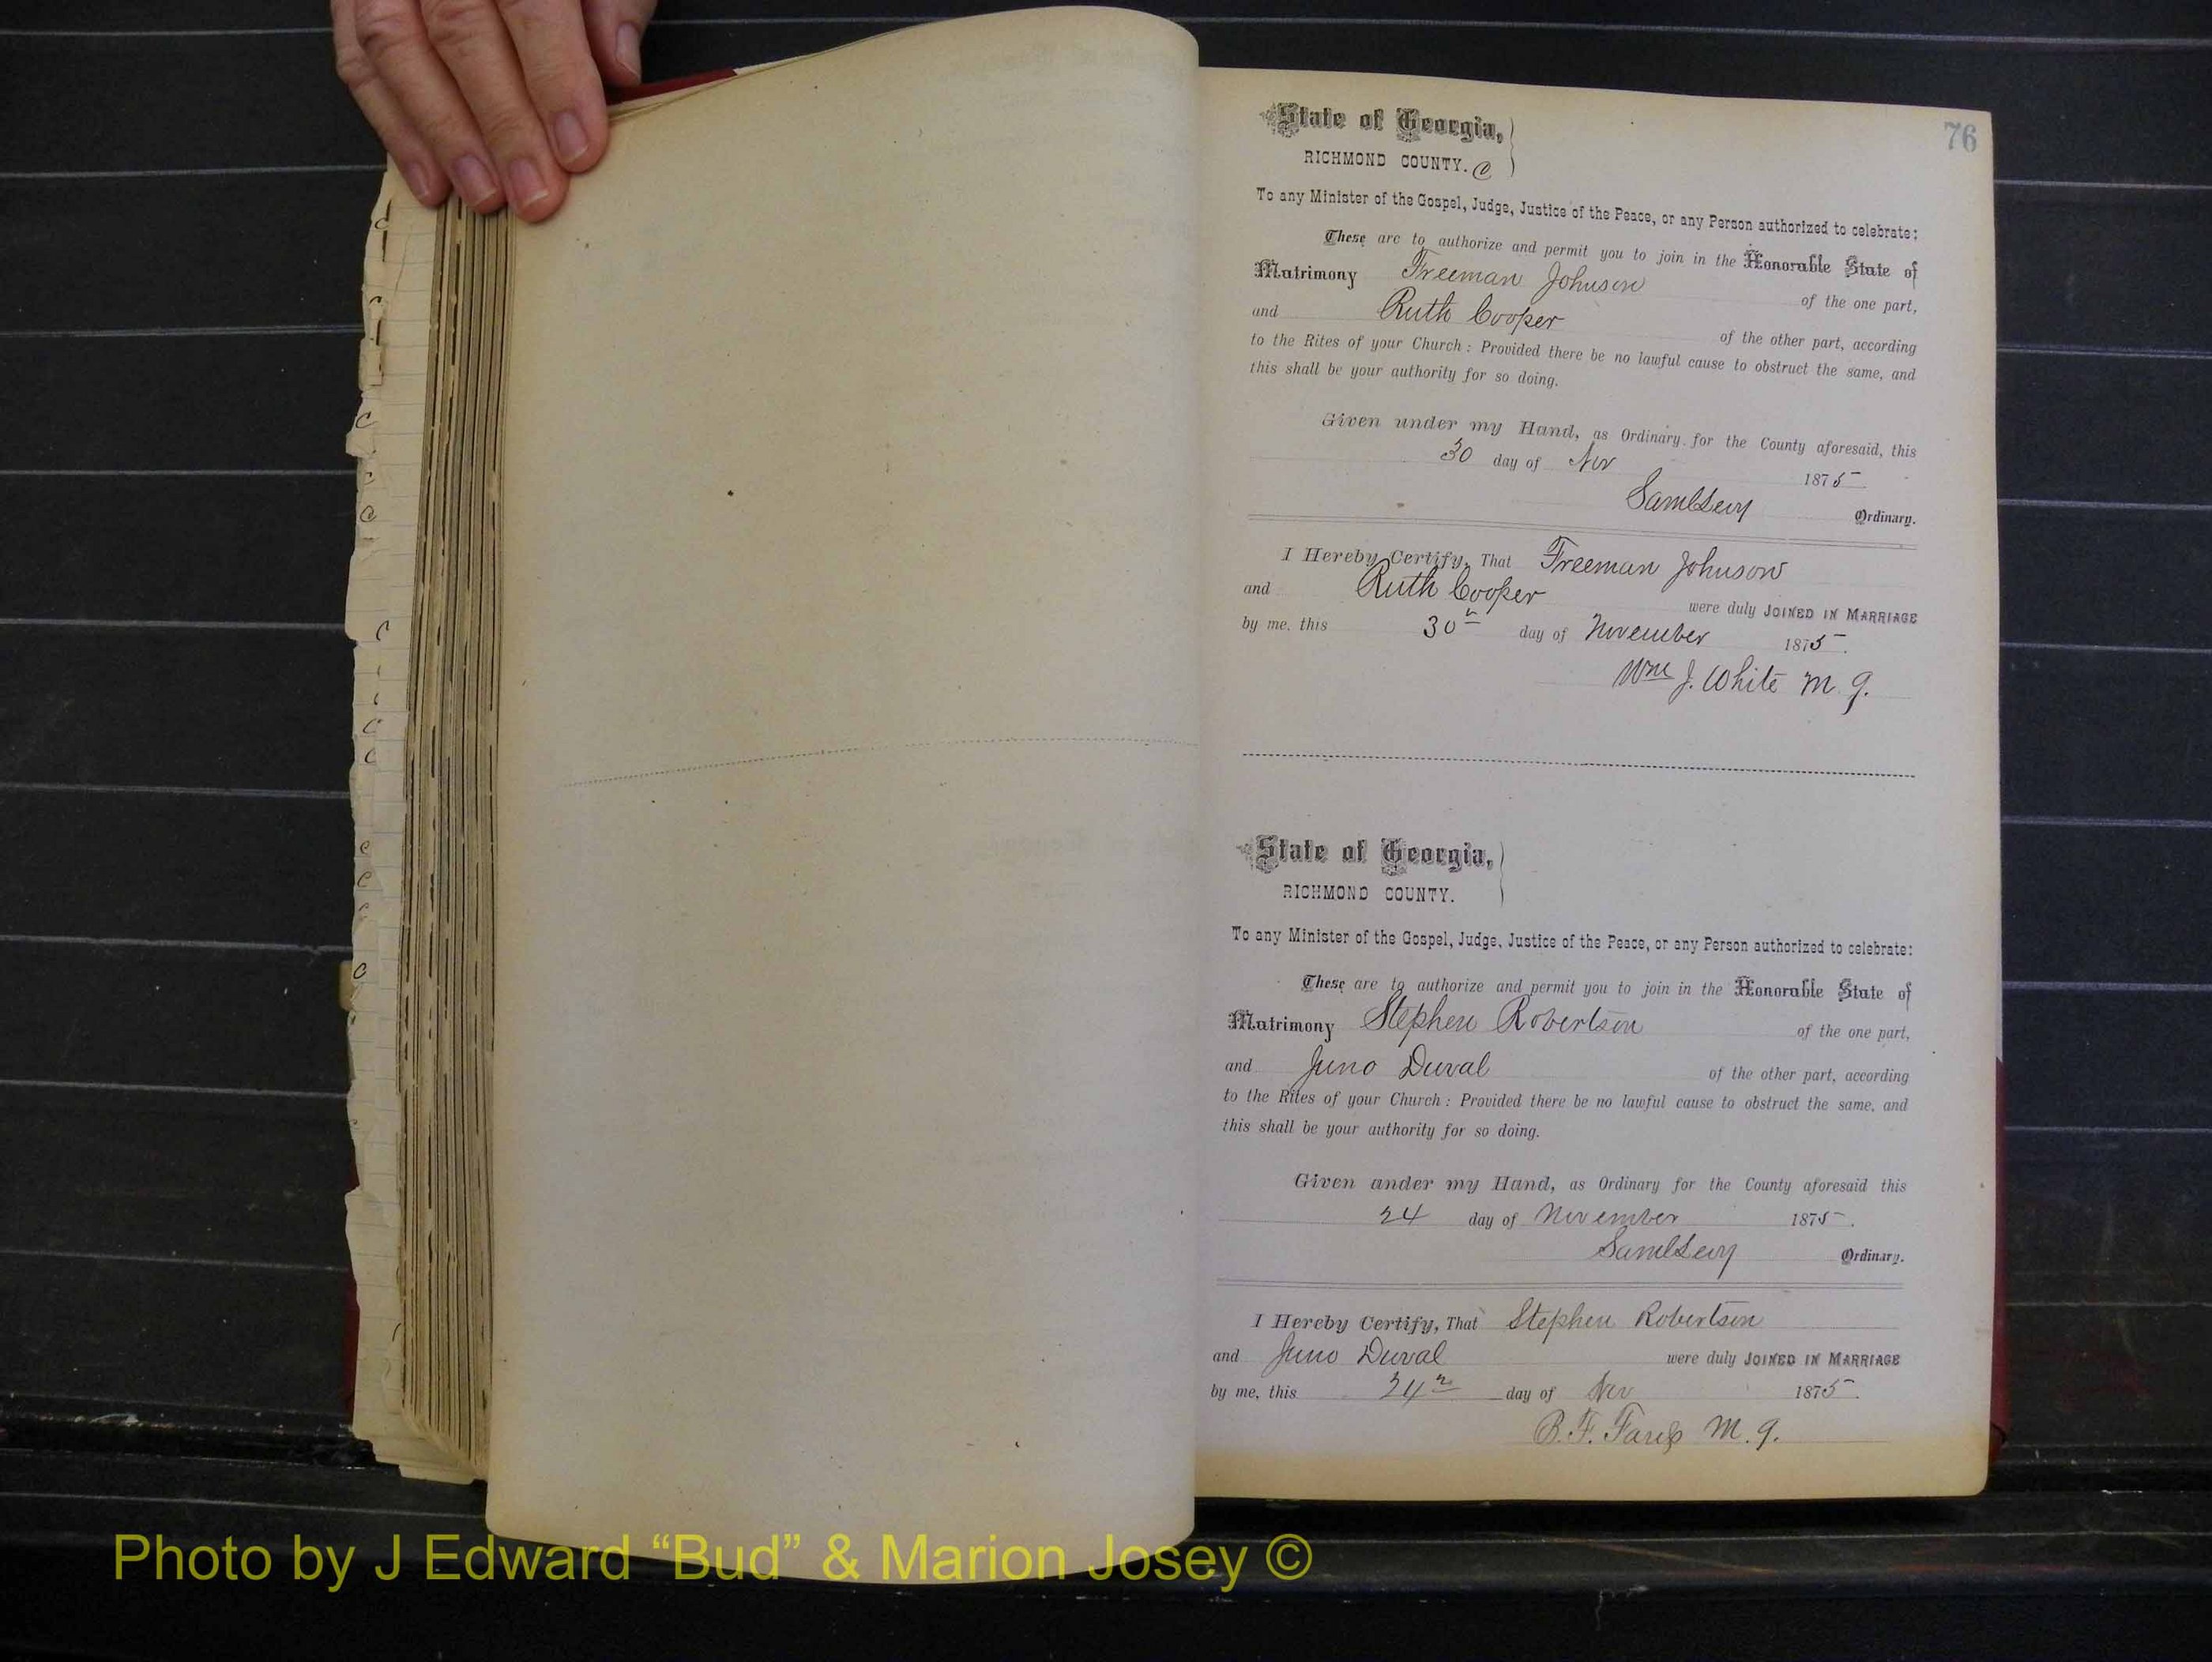 76
State of Georgia,
RICHMOND COUNTY. C
To any Minister of the Gospel, Judge, Justice of the Peace, or any Person authorized to celebrate:
These are to authorize and permit you to join in the Honorable State of
Matrimony Freeman Johnson of the one part,
and Ruth Cooper of the other part, according
to the Rites of your Church: Provided there be no lawful cause to obstruct the same, and
this shall be your authority for so doing.
Given under my Hand, as Ordinary for the County aforesaid, this
30 day of Nov 1875
Saml Levy Ordinary.
I Hereby Certify, That Freeman Johnson
and Ruth Cooper were duly JOINED IN MARRIAGE
by me, this 30 day of November 1875.
Wm J. White M. G.
State of Georgia,
RICHMOND COUNTY.
To any Minister of the Gospel, Judge, Justice of the Peace, or any Person authorized to celebrate:
These are to authorize and permit you to join in the Honorable State of
Matrimony Stephen Robertson of the one part,
and Juno Duval of the other part, according
to the Rites of your Church: Provided there be no lawful cause to obstruct the same, and
this shall be your authority for so doing.
Given under my Hand, as Ordinary for the County aforesaid this
24 day of November 1875.
Saml Levy Ordinary.
I Hereby Certify, That Stephen Robertson
and Juno Duval were duly JOINED IN MARRIAGE
by me, this 24 day of Nov 1875.
B. F. M. G.
Photo by J Edward “Bud” & Marion Josey ©